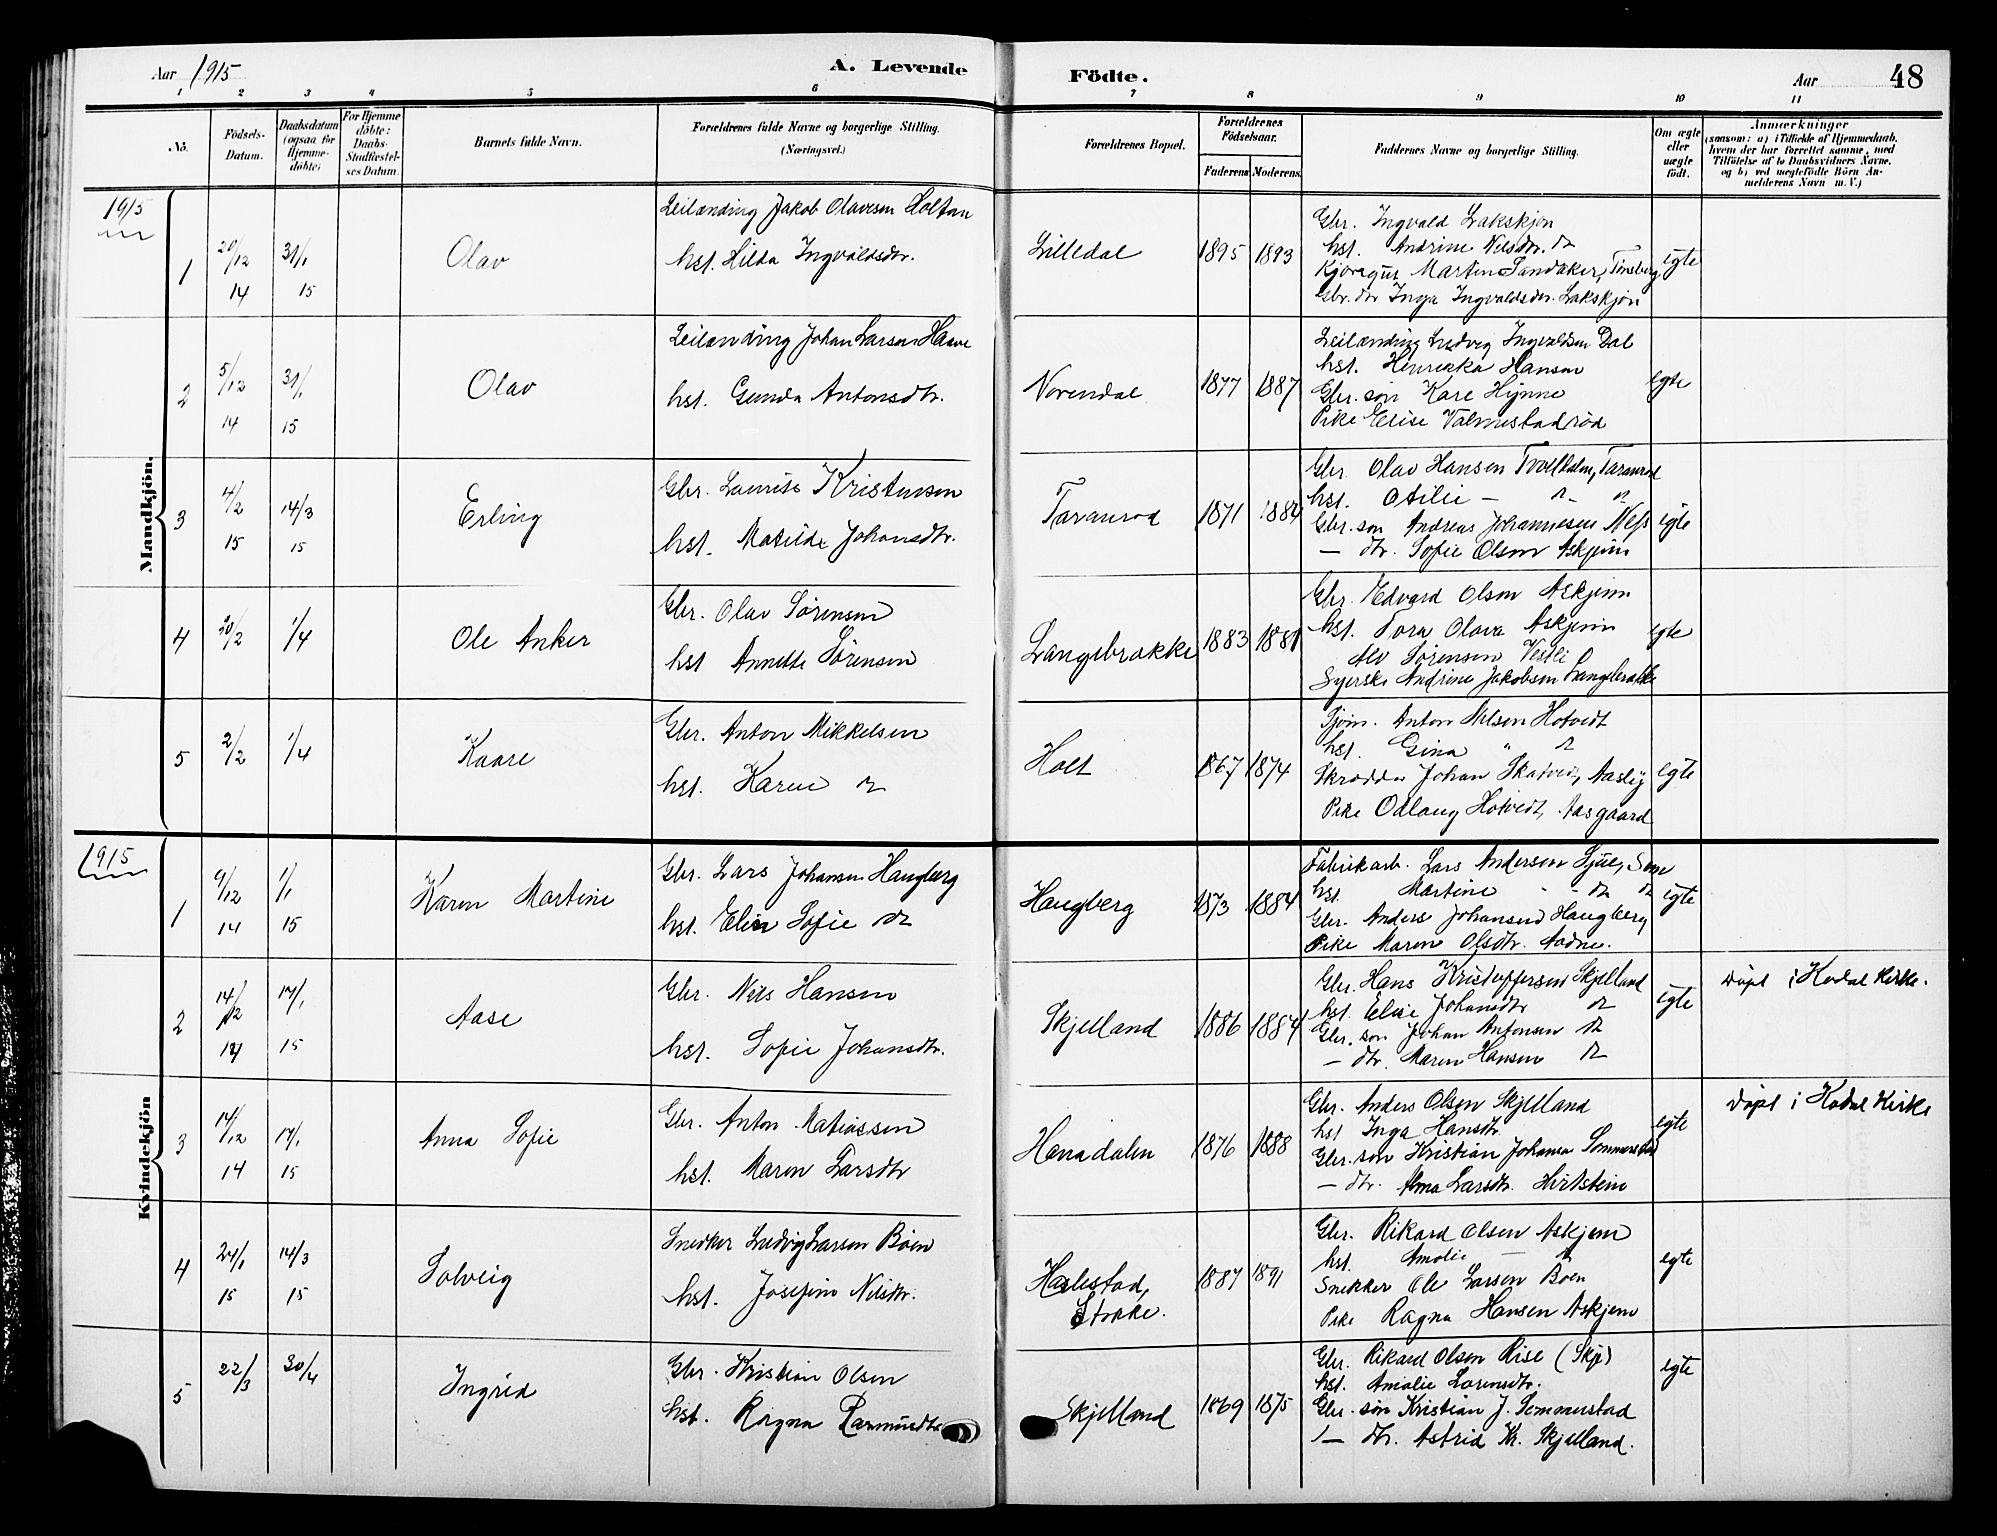 Aar 1915
A. Levende
Födte.
Aar
48
1 2 3 4 5 6 7 8 9 10 11
No.
Födsels-
Datum.
Daabsdatum
(ogsaa for
Hjemme-
døbte)
For Hjemme
døbte:
Daabs-
Stadfæstel-
ses Datum.
Barnets fulde Navn.
Forældrenes fulde Navne og borgerlige Stilling.
(Næringsvei.)
Forældrenes Bopæl.
Forældrenes
Födselsaar.
Faderens Moderens
Faddernes Navne og borgerlige Stilling.
Om ægte
eller
uægte
født.
Anmærkninger
(saasom: a) i Tilfælde af Hjemmedaab,
hvem der har forrettet samme, med
Tilføielse af to Daabsvidners Navne.
og b) ved uægtefødte Börn An-
melderens Navn m. V.)
Mandkjön.
1915
1
20/12 14
31/1 15
Olav
Leilænding Jakob Olavesen Holtan
hst. Hilda Ingvaldsdtr.
Lilledal
1895 1893
Gbr. Ingvald Lakskjøn
hst. Andrine Nilsdtr. do
Martin Sandaker, Tønsberg
Gbr. dtr Inga Ingvaldsdtr. Lakskjøn
egte
2
5/12 14
31/1 15
Olav
Leilænding Johan Larsen Haave
hst. Gunda Antonsdtr.
Norendal
1877 1887
Leilænding Ludvig Ingvaldsen Dal
hst. Henrikka Hansen
Gbr. søn Kare Hynne
Pike Elise Valmestadrød
egte
3
4/2 15
14/3 15
Erling
Gbr. Lauritz Kristensen
hst. Matilde Johansdtr.
Taranrød
1871 1884
Gbr. Olav Hansen Taranrød
hst. Otilie — do do
Gbr. søn Andreas Johannesen Næss
— dtr. Sofie Olsen Askjem
egte
4
20/2
1/4
Ole Anker
Gbr. Olav Sørensen
hst Annette Sørensen
Langebrække
1883 1881
Gbr. Edvard Olsen Askjem
hst. Tora Olava Askjem
Alv Sørensen Vestli
Syerske Andrine Jakobsen Langebrække
egte
5
2/2
1/4
Kaare
Gbr. Anton Mikkelsen
hst. Karen do
Holt
1867 1874
Sjøm. Anton Nilsen Hotvedt
hst. Gina " do
Skrædder Johan Skatvedt, Aasly
Pike Odlaug Hotvedt, Aasgaard
egte
Kvindekjön
1915
1
9/12 14
1/1 15
Karen Martine
Gbr. Lars Johansen Haugberg
hst. Elin Sofie do
Haugberg
1873 1884
Fabrikarb. Lars Andersen Gjue, Sem
hst. Martine - - do do
Gbr. Anders Johansen Haugberg
Pike Maren Olsdtr. Aadne.
egte
2
14/12 14
17/1 15
Aase
Gbr. Nils Hansen
hst. Sofie Johansdtr.
Skjelland
1886 1884
Gbr. Hans Kristoffersen Skjelland
hst. Elise Johansdtr do
Gbr. søn Johan Antonsen do
— dtr. Maren Hansen do
egte
Døpt i Kodal Kirke.
3
14/12 14
17/1 15
Anna Sofie
Gbr. Anton Matiassen
hst. Maren Larsdtr
Hanadalen
1876 1888
Gbr. Anders Olsen Skjelland
hst Inga Hansdtr.
Gbr. søn Kristian Johansen Sommerstad
— dtr. Alma Larsdtr. Hirtstein
egte
Døpt i Kodal Kirke
4
24/1 15
14/3 15
Solveig
Snedker Ludvig Larsen Bøen
hst. Josefine Nilsdtr.
Harlestad,
Stokke.
1887 1891
Gbr. Rikard Olsen Askjem
hst. Amalie — do
Snekker Ole Larsen Bøen
Pike Ragna Hansen Askjem
egte
5
22/3
30/4
Ingrid
Gbr. Kristian Olsen
hst. Ragna Rasmusdtr
Skjelland
1869 1875
Gbr. Rikard Olsen Rise (Skje)
hst. Amalie Lorensdtr.
Gbr. søn Kristian J. Sommerstad
— dtr. Astrid Kr. Skjelland.
egte